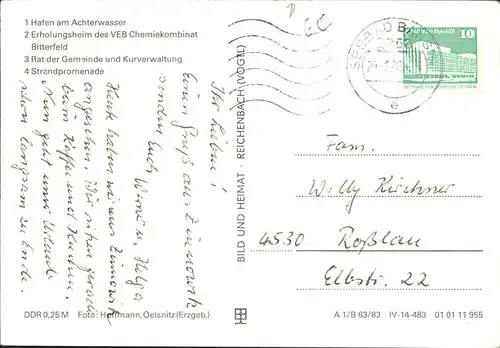 1 Hafen am Achterwasser
2 Erholungsheim des VEB Chemiekombinat
Bitterfeld
3 Rat der Gemeinde und Kurverwaltung
4 Strandpromenade
Ihr Lieben!
Einen Gruß aus Zinnowitz
senden Euch Werner u. Helga
Heute haben wir uns Zinnowitz
angesehen. Wir sitzen gerade
beim Kaffee und Kuchen.
Nun geht unser Urlaub
schon langsam zu Ende.
BILD UND HEIMAT · REICHENBACH (VOGTL)
SEEBAD
e
10
Fam.
Willy Kirchner
4530 Roßlau
Elbstr. 22
DDR 0,25 M Foto: Hoffmann, Oelsnitz (Erzgeb.)
A 1/B 63/83 IV-14-483 01 01 11 955